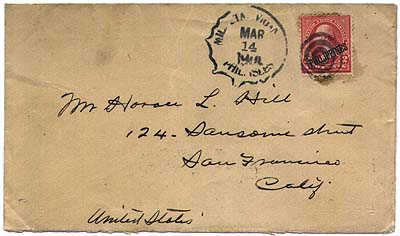 MIL. STA.
MAR
14
PHIL. ISL'DS
PHILIPPINES
Mr Horace L. Hill
124- Sansome street
San Francisco
Calif.
United States